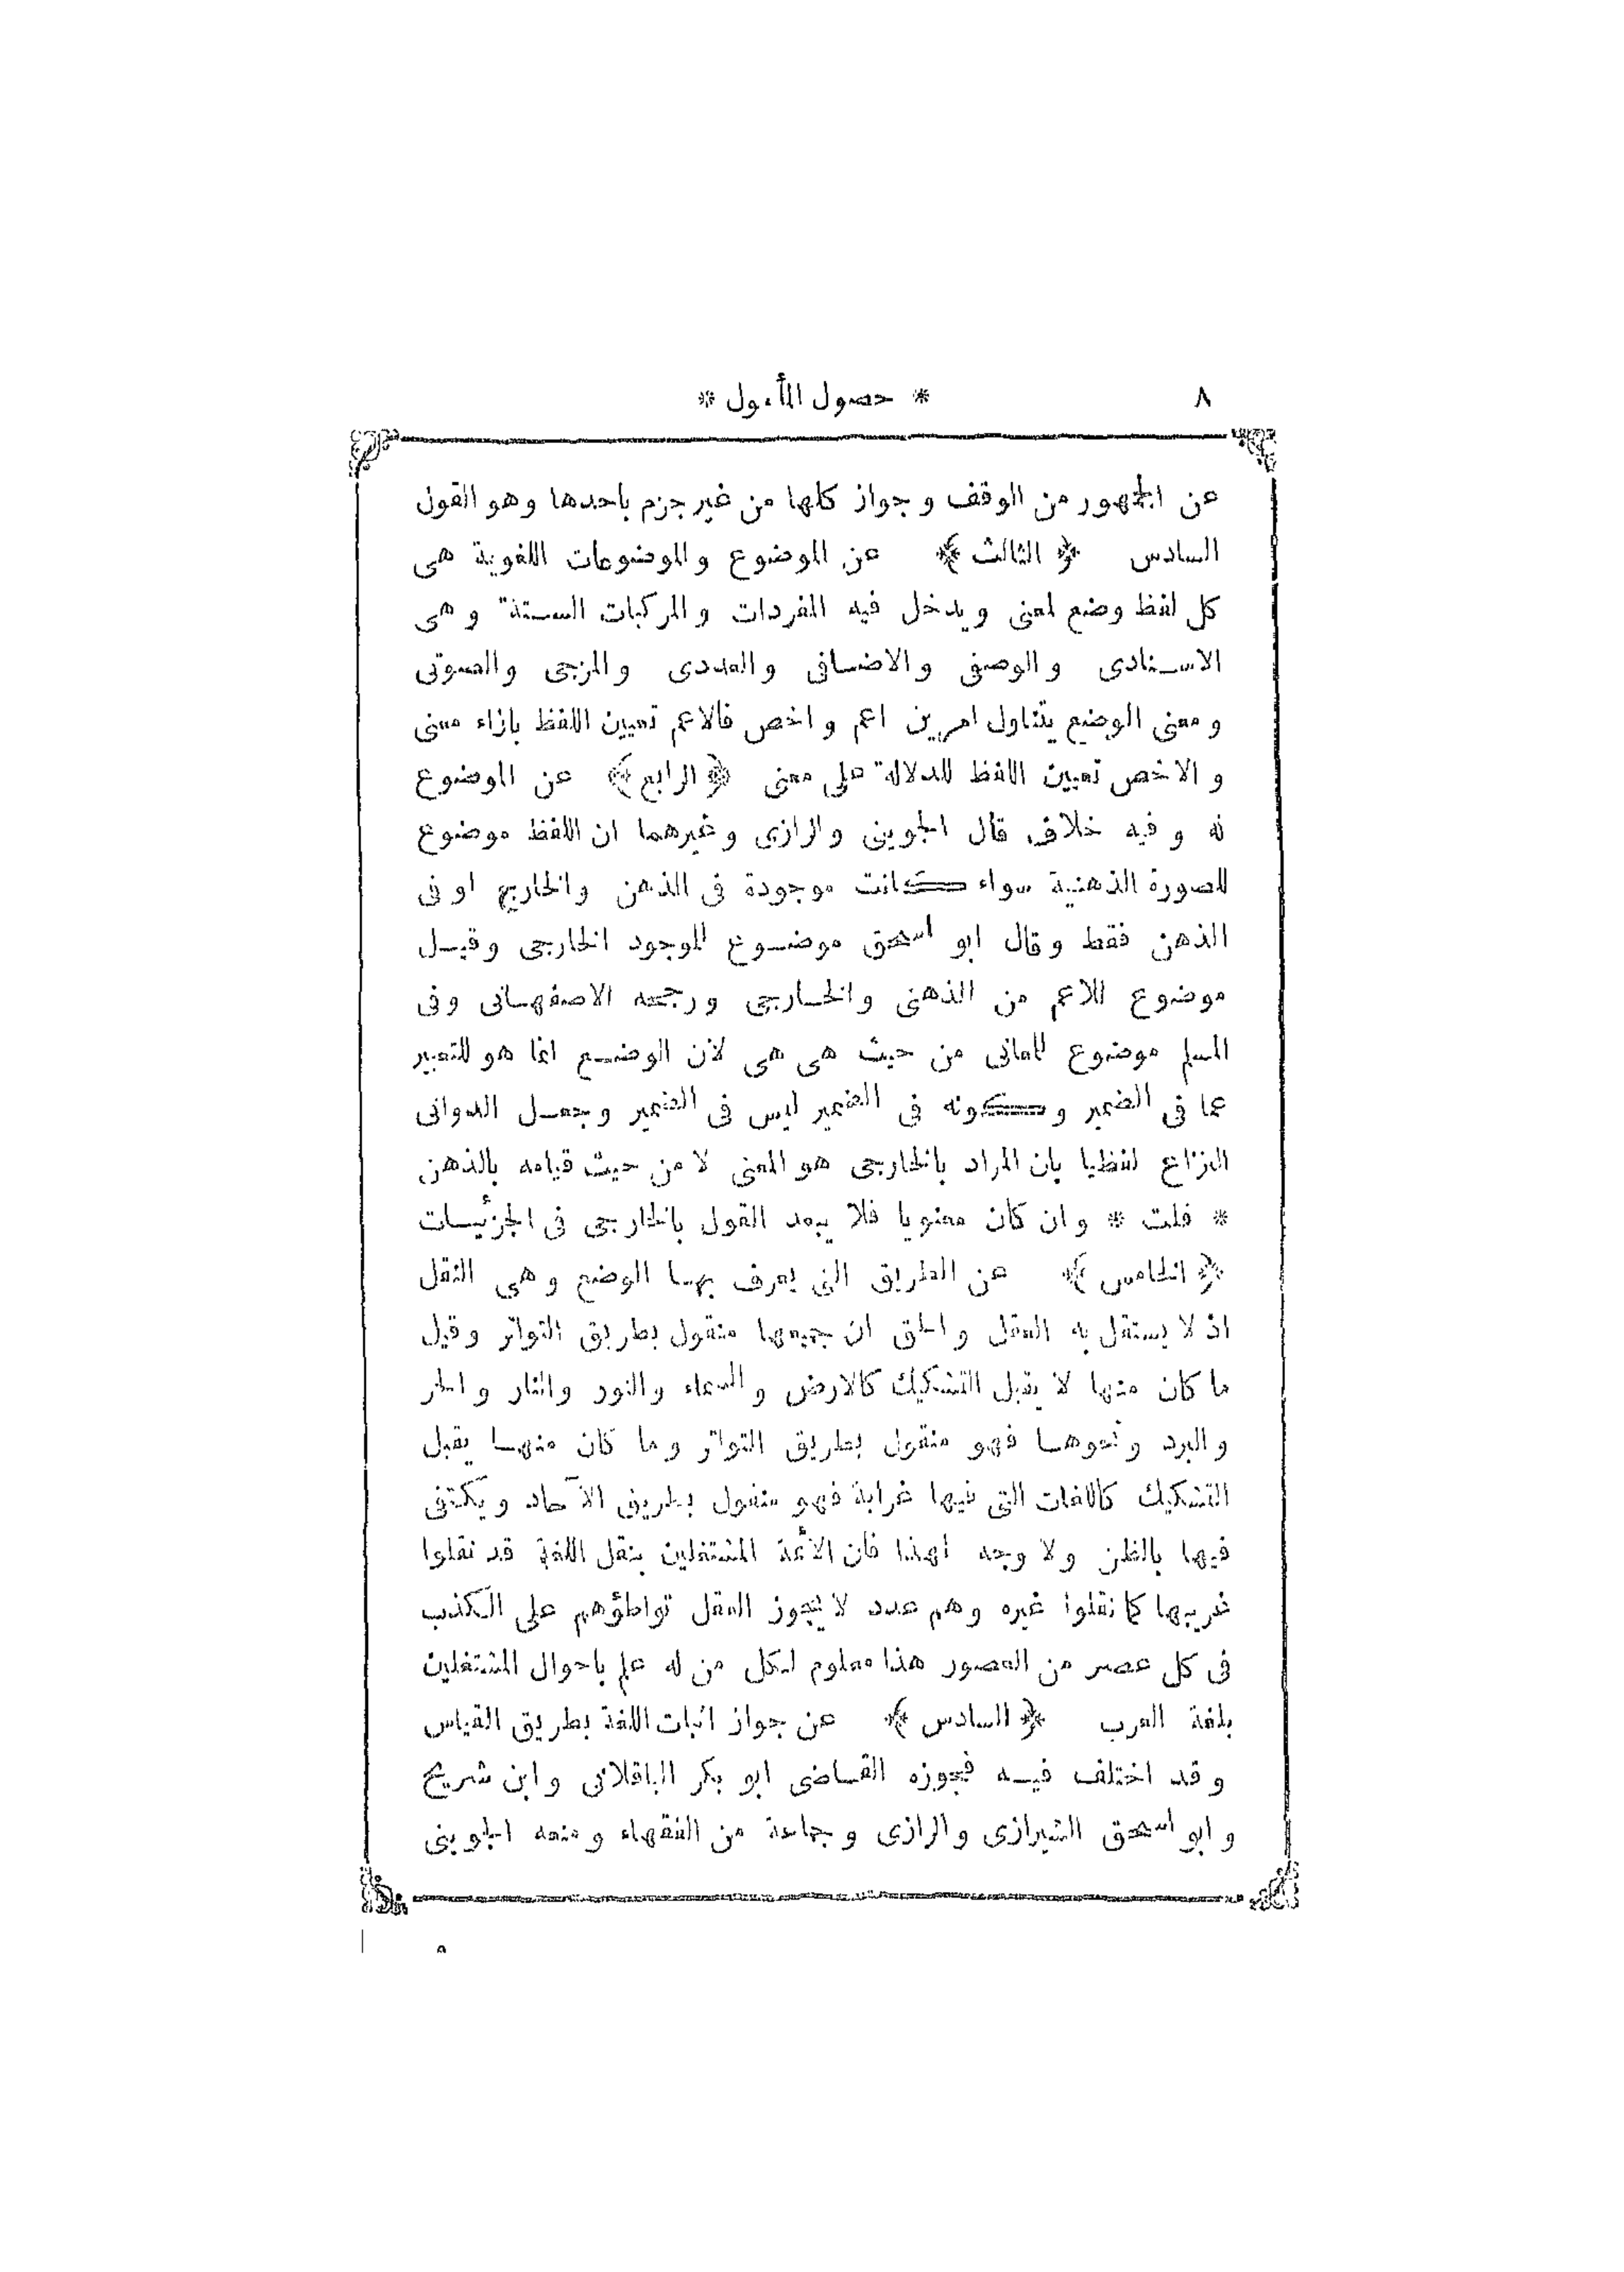 ٨
* حصول المأمول *
عن الجمهور من الوقف و جواز كلها من غير جزم باحدها وهو القول
السادس ﴿ الثالث ﴾ عن الموضوع والموضوعات اللغوية هى
كل لفظ وضع لمعنى ويدخل فيه المفردات والمركبات الستة وهى
الاسنادى والوصفى والاضافى والعددى والمزجى والصوتى
و معنى الوضع يتناول امرين اعم واخص فالاعم تعيين اللفظ بازاء معنى
و الاخص تعيين اللفظ للدلالة على معنى ﴿ الرابع ﴾ عن الموضوع
له و فيه خلاف قال الجوينى والرازى وغيرهما ان اللفظ موضوع
للصورة الذهنية سواء كانت موجودة فى الذهن والخارج او فى
الذهن فقط وقال ابو اسحق موضوع للوجود الخارجى وقيل
موضوع للاعم من الذهنى والخارجى ورجحه الاصفهانى وفى
المسلم موضوع للمعانى من حيث هى هى لان الوضع انما هو للتعبير
عما فى الضمير وكونه فى الضمير ليس فى الضمير وجعل الدوانى
النزاع لفظيا بان المراد بالخارجى هو المعنى لا من حيث قيامه بالذهن
* قلت * وان كان معنويا فلا يبعد القول بالخارجى فى الجزئيات
﴿ الخامس ﴾ عن الطريق التى يعرف بها الوضع وهى النقل
اذ لا يستقل به العقل والحق ان جميعها منقول بطريق التواتر وقيل
ما كان منها لا يقبل التشكيك كالارض والسماء والنور والنار والحر
والبرد ونحوها فهو منقول بطريق التواتر وما كان منها يقبل
التشكيك كاللغات التى فيها غرابة فهو منقول بطريق الآحاد ويكتفى
فيها بالظن ولا وجه لهذا فان الائمة المشتغلين بنقل اللغة قد نقلوا
غريبها كما نقلوا غيره وهم عدد لا يجوز العقل تواطؤهم على الكذب
فى كل عصر من العصور هذا معلوم لكل من له علم باحوال المشتغلين
بلغة العرب ﴿ السادس ﴾ عن جواز اثبات اللغة بطريق القياس
وقد اختلف فيه فجوزه القاضى ابو بكر الباقلانى وابن شريح
و ابو اسحق الشيرازى والرازى وجماعة من الفقهاء ومنعه الجوينى